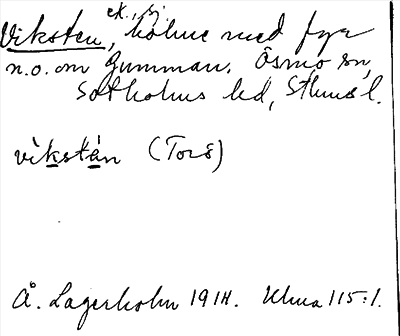 Viksten, ek., ej holme med fyr
n.o. om Gumman. Ösmo sn,
Sotholms hd, Sthms l.
vìkstä́n (Torö)
Å. Lagerholm 1914. Uhma 115:1.